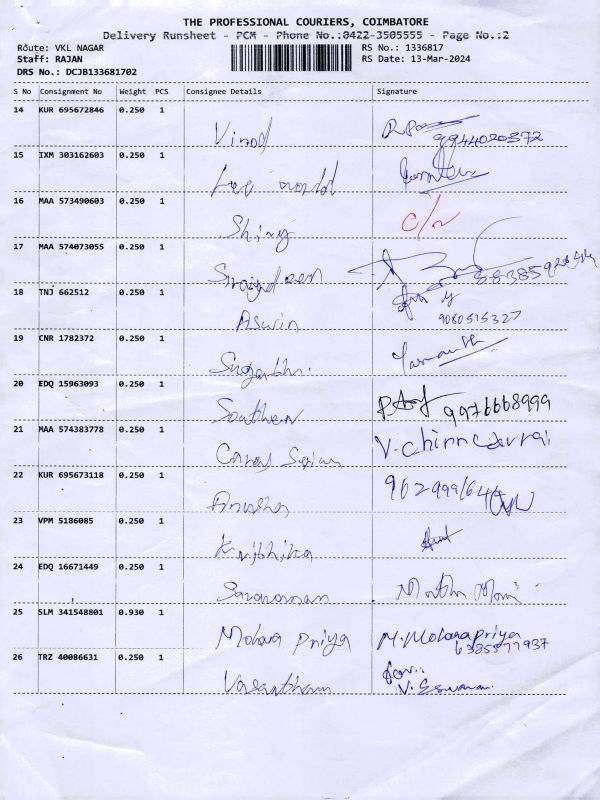 THE PROFESSIONAL COURIERS, COIMBATORE
Delivery Runsheet - PCM - Phone No.:0422-3505555 - Page No.:2
Route: VKL NAGAR RS No.: 1336817
Staff: RAJAN RS Date: 13-Mar-2024
DRS No.: DCJB133681702
S No Consignment No Weight PCS Consignee Details Signature
14 KUR 695672846 0.250 1
Vinod 9944020372
15 IXM 303162603 0.250 1
world
16 MAA 573490603 0.250 1
Shiny
17 MAA 574073055 0.250 1
18 TNJ 662512 0.250 1
Aswin 9080515327
19 CNR 1782372 0.250 1
20 EDQ 15963093 0.250 1
Southern 9976668999
21 MAA 574383778 0.250 1
V. Chinnadurai
22 KUR 695673118 0.250 1
Anusha
23 VPM 5186085 0.250 1
Krithika
24 EDQ 16671449 0.250 1
Saravanan
25 SLM 341548801 0.930 1
Mohana Priya M. Mohanapriya
6385577937
26 TRZ 40086631 0.250 1
V. Eswaran